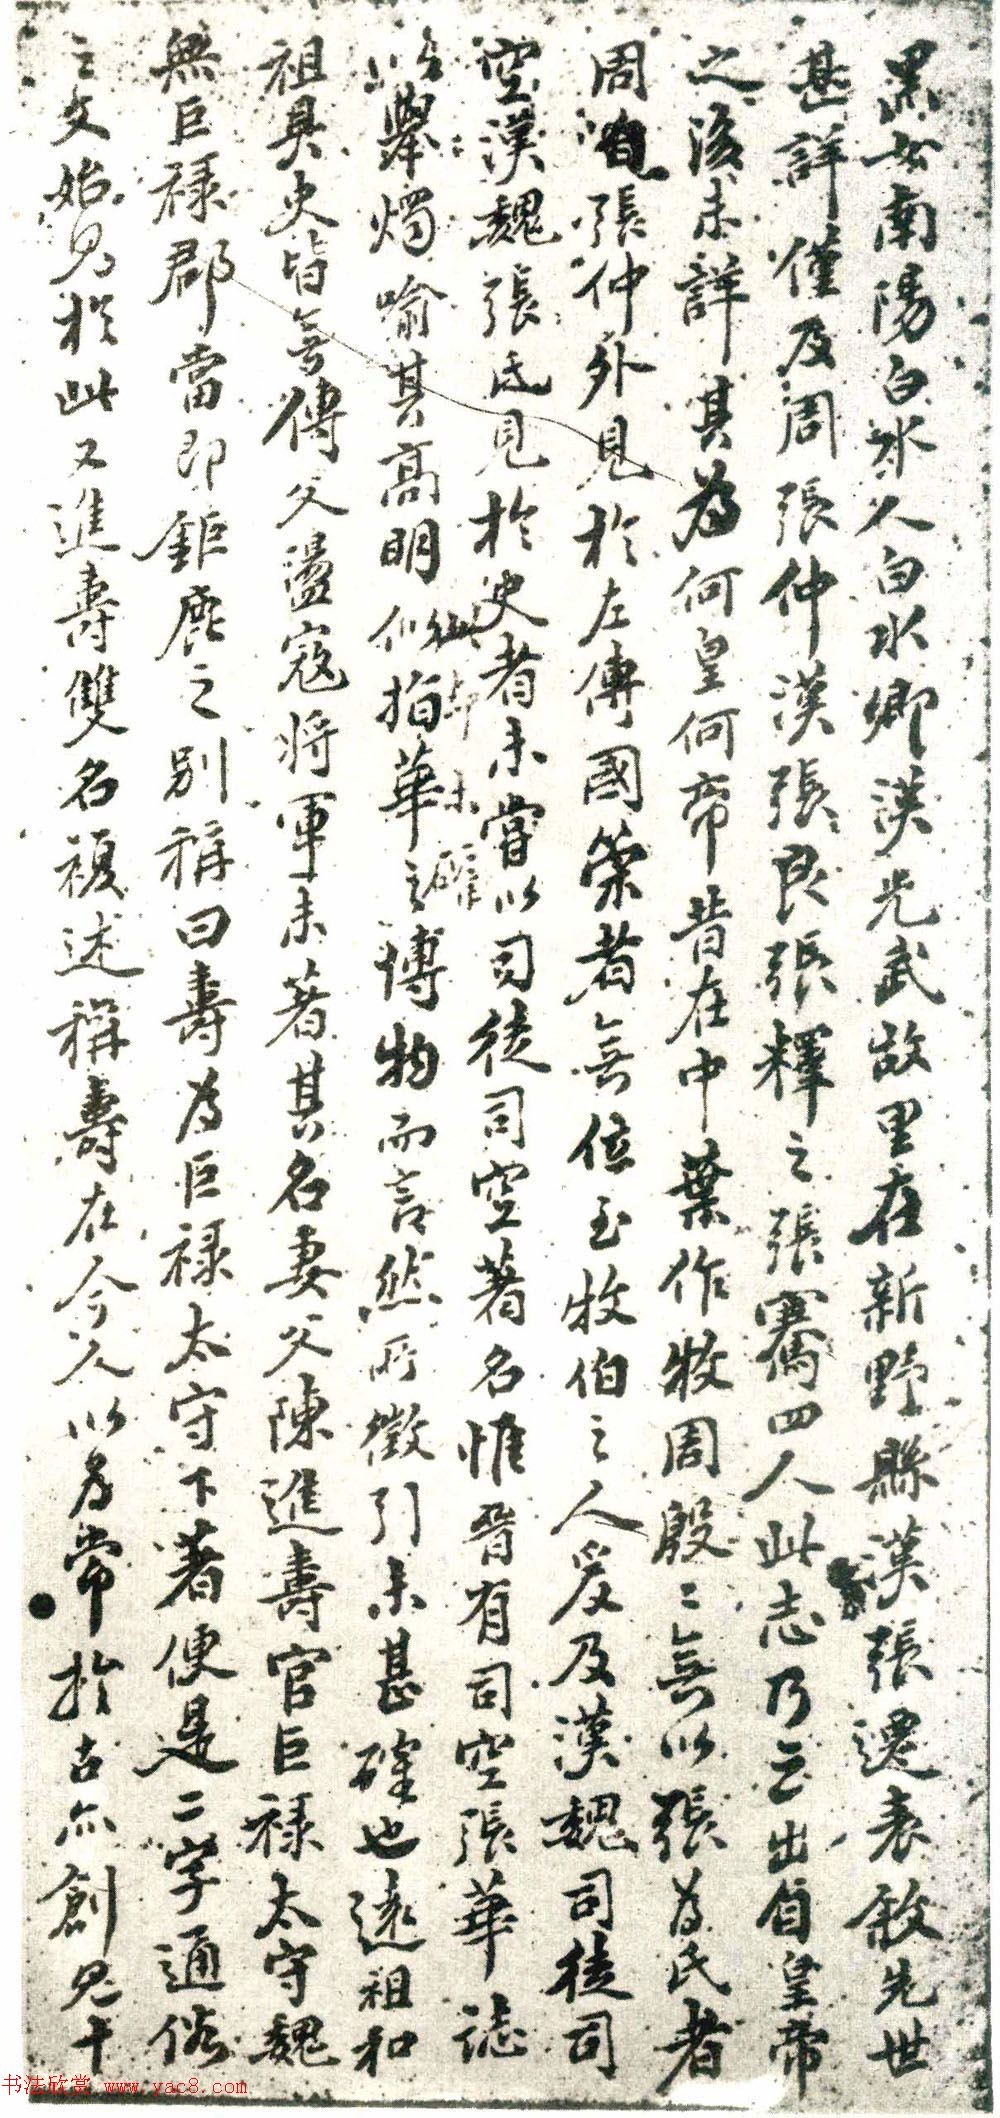 黑女南陽白水人白水鄉漢光武故里在新野縣漢張遷表敘先世
甚詳僅及周張仲漢張良張釋之張騫四人此志乃云出自皇帝
之後未詳其為何皇何帝昔在中葉作牧周殷殷無以張為氏者
周自張仲外見於左傳國策者無位至牧伯之人爰及漢魏司徒司
空漢魏張氏見於史者未嘗以司徒司空著名惟晉有司空張華誌
以舉燭喻其高明似指華之博物而言然所徵引未甚確也遠祖和
此却未
祖具史皆無傳父盪寇將軍未著其名妻父陳進壽官巨祿太守魏
無巨祿郡當即鉅鹿之別稱曰壽為巨祿太守下著便是二字通俗
之文始見於此又進壽雙名複述稱壽在今人以為常於古亦創見十
书法欣赏 www.yac8.com